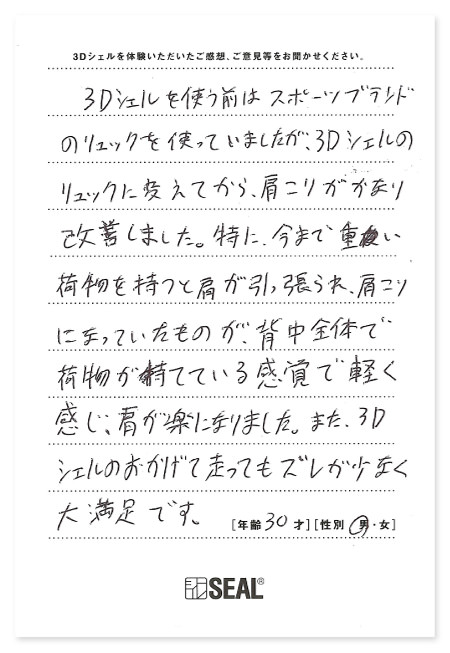 3Dシェルを体験いただいたご感想、ご意見等をお聞かせください。
3Dシェルを使う前は スポーツブランド
のリュックを使っていましたが、3Dシェルの
リュックに変えてから、肩こりがかなり
改善しました。特に、今まで重い
荷物を持つと肩が引っ張られ、肩こり
になっていたものが、背中全体で
荷物が持てている感覚で軽く
感じ、肩が楽になりました。また、3D
シェルのおかげで走ってもズレが少なく
大満足です。 [年齢 30 才] [性別 男・女]
SEAL®